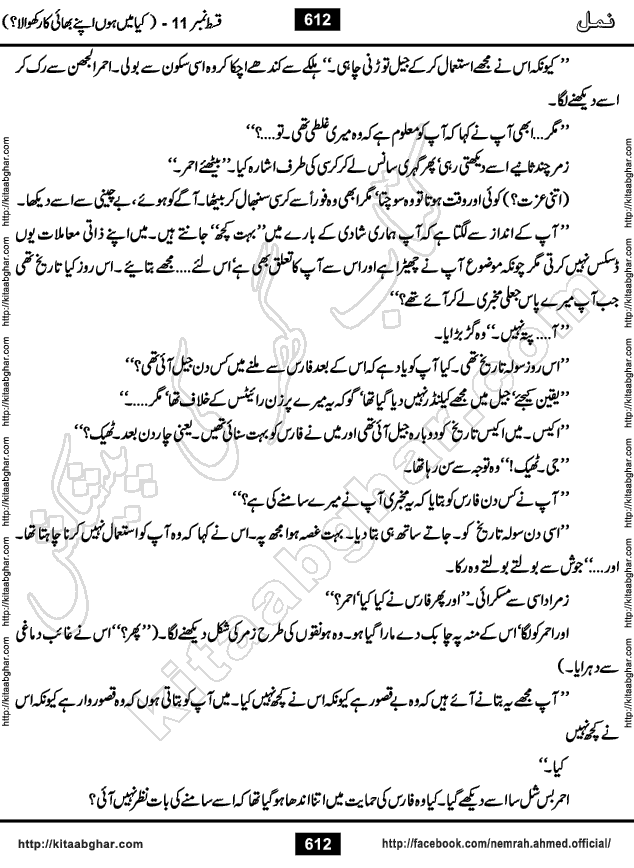 نمل
612
قسط نمبر 11 - (کیا میں ہوں اپنے بھائی کا رکھوالا؟)
’’کیونکہ اس نے مجھے استعمال کر کے جیل توڑنی چاہی۔‘‘ ہلکے سے کندھے اچکا کر وہ اسی سکون سے بولی۔ احمر الجھن سے رک کر
اسے دیکھنے لگا۔
’’مگر... ابھی آپ نے کہا کہ آپ کو معلوم ہے کہ وہ میری غلطی تھی۔ تو....؟‘‘
زمر چند ثانیے اسے دیکھتی رہی‘ پھر گہری سانس لے کر کرسی کی طرف اشارہ کیا۔ ’’بیٹھئے احمر۔‘‘
(اتنی عزت؟) کوئی اور وقت ہوتا تو وہ سوچتا‘ مگر ابھی وہ فوراً سے کرسی سنبھال کر بیٹھا۔ آگے کو ہوئے، بے چینی سے اسے دیکھا۔
’’آپ کے انداز سے لگتا ہے کہ آپ ہماری شادی کے بارے میں ’’بہت کچھ‘‘ جانتے ہیں۔ میں اپنے ذاتی معاملات یوں
ڈسکس نہیں کرتی مگر چونکہ موضوع آپ نے چھیڑا ہے اور اس سے آپ کا تعلق بھی ہے‘ اس لئے.... مجھے بتائیے۔ اس روز کیا تاریخ تھی
جب آپ میرے پاس جعلی مخبری لے کر آئے تھے؟‘‘
’’آ.... پتہ نہیں۔‘‘ وہ گڑبڑایا۔
’’اس روز سولہ تاریخ تھی۔ کیا آپ کو یاد ہے کہ اس کے بعد فارس سے ملنے میں کس دن جیل آئی تھی؟‘‘
’’یقین کیجئے‘ جیل میں مجھے کیلنڈر نہیں دیا گیا تھا‘ گو کہ یہ میرے پرزن رائیٹس کے خلاف تھا‘ مگر.....‘‘
’’اکیس۔ میں اکیس تاریخ کو دوبارہ جیل آئی تھی اور میں نے فارس کو بہت سنائی تھیں۔ یعنی چار دن بعد۔ ٹھیک؟‘‘
’’جی۔ ٹھیک!‘‘ وہ توجہ سے سن رہا تھا۔
’’آپ نے کس دن فارس کو بتایا کہ یہ مخبری آپ نے میرے سامنے کی ہے؟‘‘
’’اسی دن سولہ تاریخ کو۔ جاتے ساتھ ہی بتا دیا۔ بہت غصہ ہوا مجھ پہ۔ اس نے کہا کہ وہ آپ کو استعمال نہیں کرنا چاہتا تھا۔
اور....‘‘ جوش سے بولتے بولتے وہ رکا۔
زمر اداسی سے مسکرائی۔ ’’اور پھر فارس نے کیا کیا‘ احمر؟‘‘
اور احمر کو لگا‘ اس کے منہ پہ چابک دے مارا گیا ہو۔ وہ ہونقوں کی طرح زمر کی شکل دیکھنے لگا۔ (’’پھر؟‘‘ اس نے غائب دماغی
سے دہرایا۔)
’’آپ مجھے یہ بتانے آئے ہیں کہ وہ بے قصور ہے کیونکہ اس نے کچھ نہیں کیا۔ میں آپ کو بتاتی ہوں کہ وہ قصوروار ہے کیونکہ اس
نے کچھ نہیں
کیا۔‘‘
احمر بس شل سا اسے دیکھے گیا۔ کیا وہ فارس کی حمایت میں اتنا اندھا ہو گیا تھا کہ اسے سامنے کی بات نظر نہیں آئی؟
http://kitaabghar.com
http://kitaabghar.com
http://kitaabghar.com
http://kitaabghar.com
http://kitaabghar.com
http://kitaabghar.com
http://kitaabghar.com
http://kitaabghar.com
کتاب گھر کی پیشکش
kitaabghar.com
http://kitaabghar.com
612
http://facebook.com/nemrah.ahmed.official/